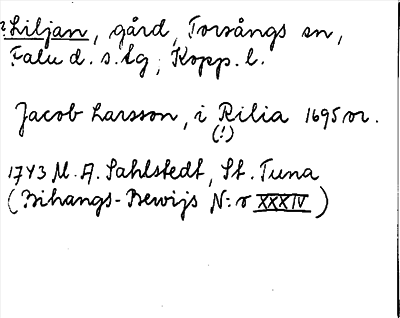 ?Liljan, gård, Torsångs sn,
Falu d. s. lg, Kopp. l.
Jacob Larsson, i Rilia 1695 or.
(!)
1743 M. A. Sahlstedt, St. Tuna
(Bihangs-Bewijs N:o XXXIV)